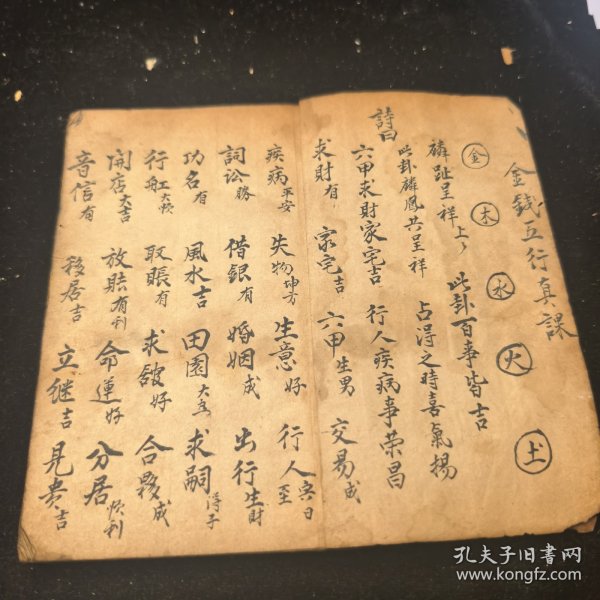 金錢五行真課
金 木 水 火 土
麟趾呈祥 上上 此卦百事皆吉
詩曰
此卦麟鳳共呈祥 占淂之時喜氣揚
六甲求財家宅吉 行人疾病事荣昌
求財有 家宅吉 六甲生男 交易成
疾病平安 失物坤方 生意好 行人至
詞訟勝 借銀有 婚姻成 出行生財
功名有 風水吉 田園大 求嗣淂子
行船大 取賬有 求舘好 合夥成
開店大吉 放賬有利 命運好 分居利
音信有 移居吉 立继吉 見贵吉
孔夫子旧書网
www.kongfz.com